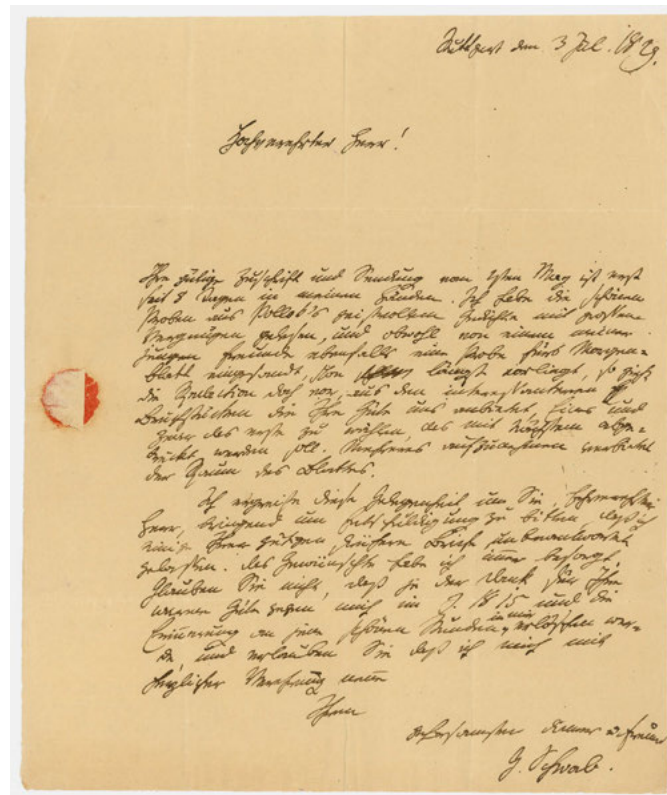 Stuttgart den 3 Jul. 1829.
Hochverehrter Herr!
Ihre gütige Zuschrift und Sendung vom 2ten May ist erst
seit 8 Tagen in meinen Händen. Ich habe die schönen
Proben aus Pollok's Gedichte mit großem
Vergnügen gelesen, und obwohl von einem meiner
jungen Freunde ebenfalls eine Probe fürs Morgen-
blatt eingesandt, schon längst vorliegt, so zieht
die Redaction doch vor, aus den interessanteren
Bruchstücken die Ihre Güte uns anbietet, eines und
zwar das erste zu wählen, das mit nächstem abge-
druckt werden soll. Mehreres aufzunehmen verbietet
der Raum des Blattes.
Ich ergreife diese Gelegenheit um Sie, Hochverehrter
Herr, dringend um Entschuldigung zu bitten, daß ich
einige Ihrer gütigen früheren Briefe unbeantwortet
gelassen. Das Gewünschte habe ich immer besorgt.
Glauben Sie nicht, daß je der Dank für Ihre
Güte gegen mich im J. 1815 und die
Erinnerung an jene schönen Stunden in mir erlöschen wer-
de, und erlauben Sie daß ich mich mit
herzlicher Verehrung nenne
Ihren
gehorsamsten Diener u Freund
G. Schwab.